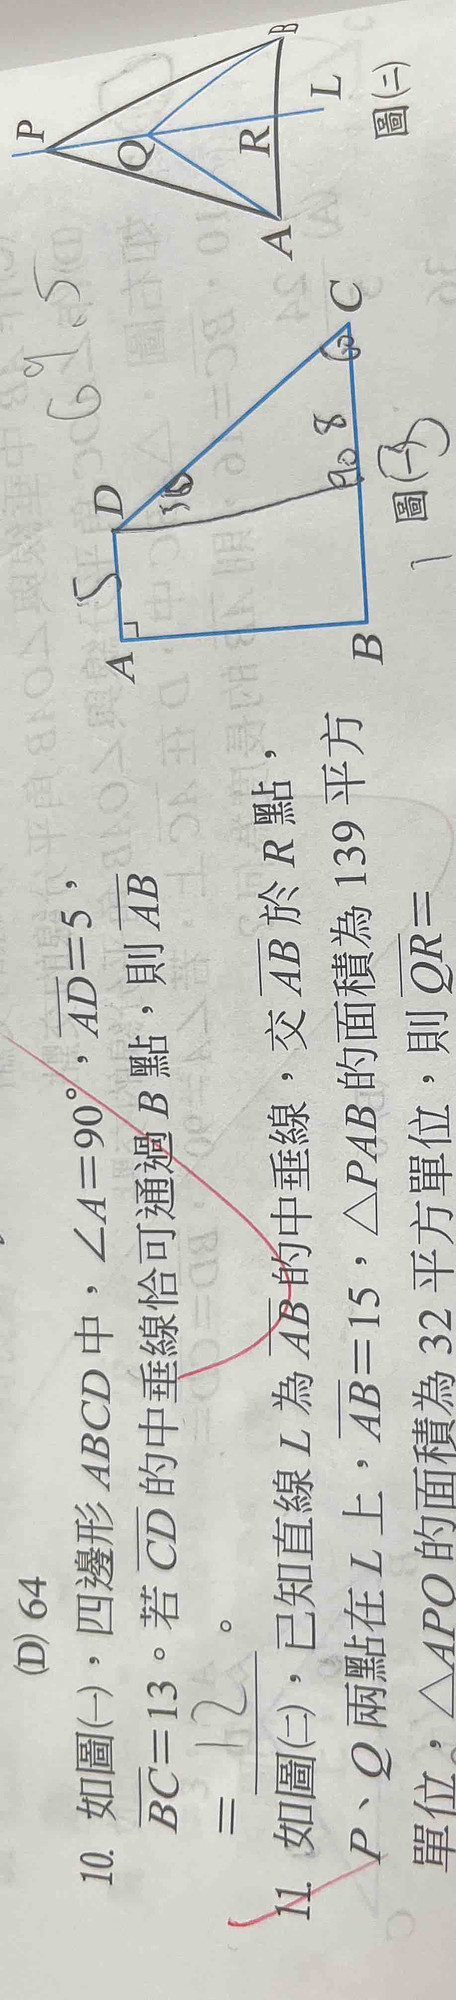 (D) 64
10. 如圖(一)，四邊形ABCD中，∠A=90°，AD=5，
BC=13。若CD的中垂線恰可通過B點，則AB
= 12 。
11. 如圖(二)，已知直線L為AB的中垂線，交AB於R點，
P、Q兩點在L上，AB=15，△PAB的面積為139平方
單位，△APQ的面積為32平方單位，則QR=
A
5
D
30
90
8
60
B
C
圖(一)
69.5
P
Q
R
A
B
L
圖(二)